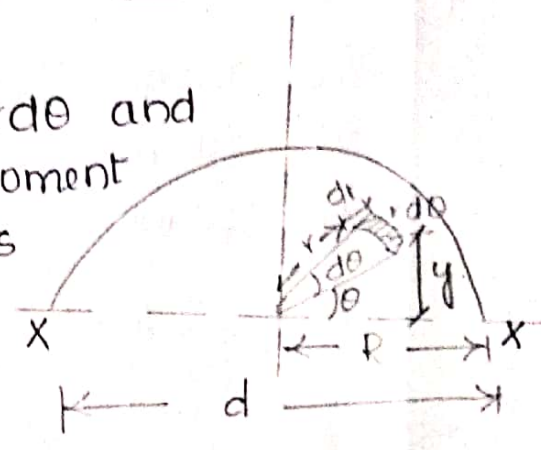 dθ and
oment
s
dr
r dθ
r
dθ
θ
y
X
R
X
d